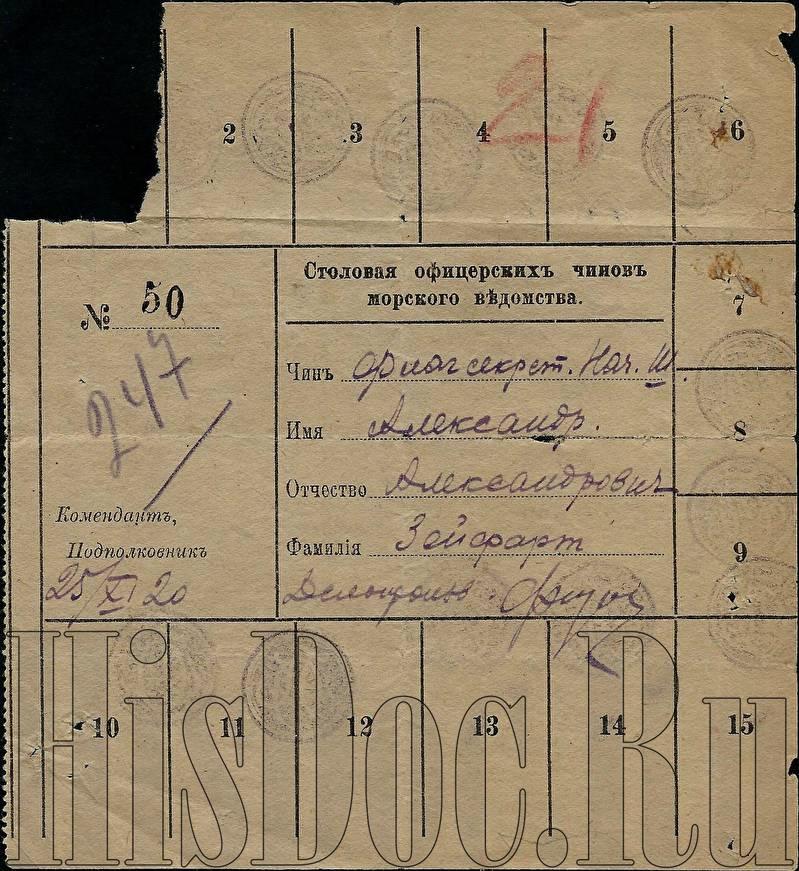 2 3 4 5 6
21
№ 50
247
Столовая офицерскихъ чиновъ
морского вѣдомства.
7
Чинъ Флагсекрет. Нач. Ш.
Имя Александр.
8
Отчество Александрович
Комендантъ,
Подполковникъ
Фамилія Зейфарт
9
25/XI 20
10 11 12 13 14 15
HisDoc.Ru